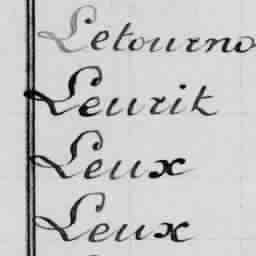 Letourno
Leurik
Leux
Leux